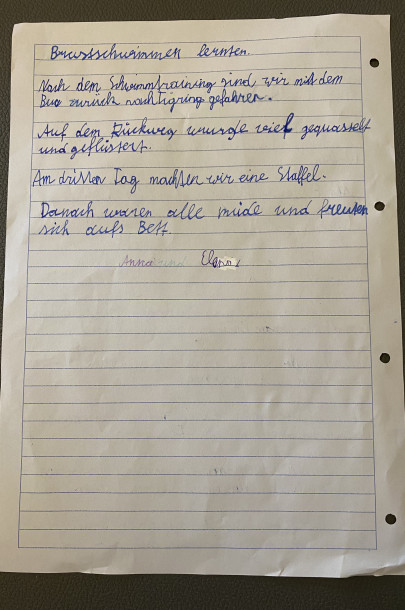 Brustschwimmen lernten.
Nach dem Schwimmtraining sind wir mit dem
Bus zurück gefahren.
Auf dem Rückweg wurde viel gequasselt
und geflüstert.
Am dritten Tag machten wir eine Staffel.
Danach waren alle müde und freuten
sich aufs Bett.
Anna und